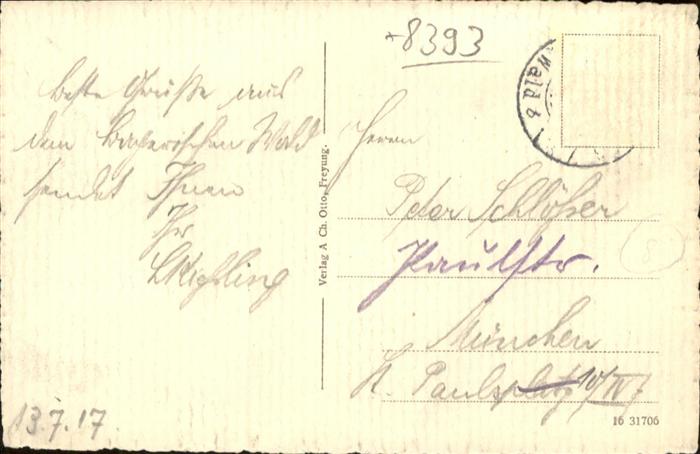 +8393
Wald b
Beste Grüße aus
dem bayerischen Wald
sendet Ihnen
Ihr
Verlag A Ch. Otto, Freyung.
Herrn
Peter Schlößer
Paulstr.
München
St. Paulsplatz 10/IV
13.7.17
8
16 31706